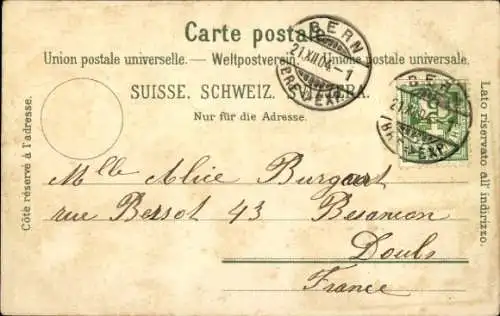 Carte postale.
Union postale universelle. — Weltpostverein. — Unione postale universale.
SUISSE. SCHWEIZ. SVIZZERA.
Nur für die Adresse.
Côté réservé à l'adresse.
Lato riservato all' indirizzo.
BERN
21.XII.04.-1
BRF. EXP.
BERN
EXP.
Mlle Alice Burgart
rue Bersot 43 Besançon
Doubs
France